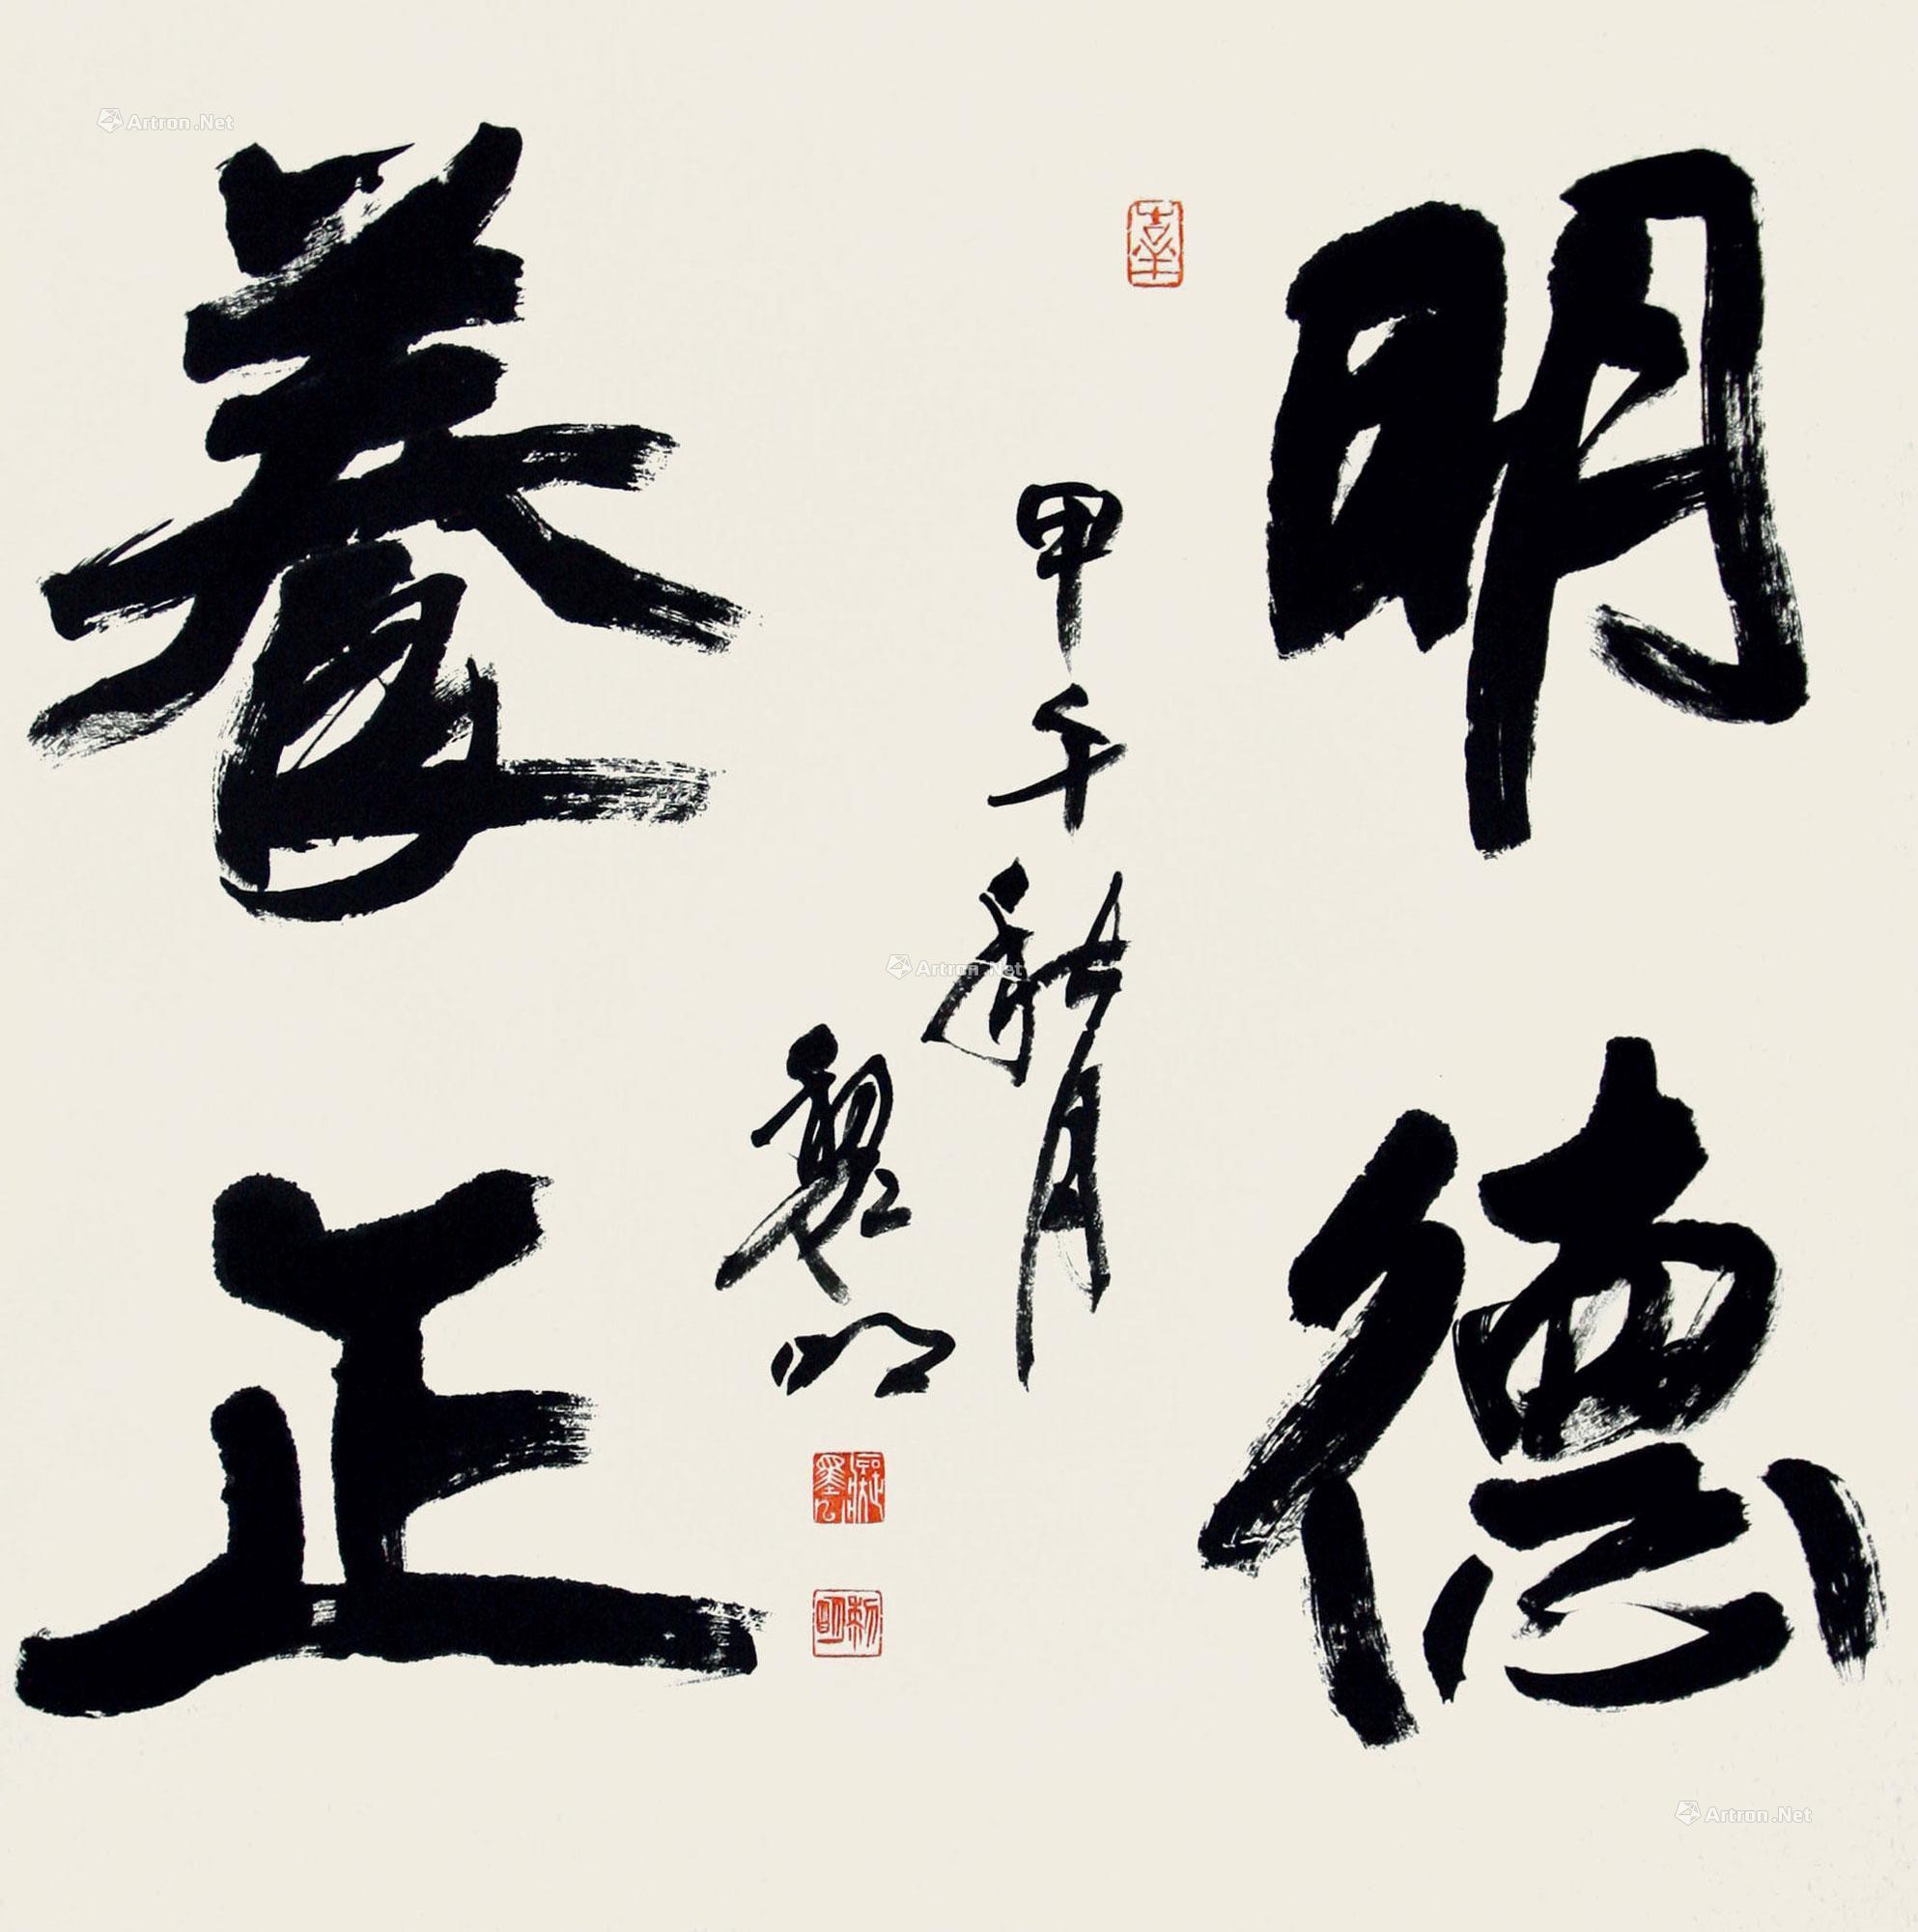 明德
甲午秋月
黎明
養正
Artron.Net
Artron.Net
Artron.Net